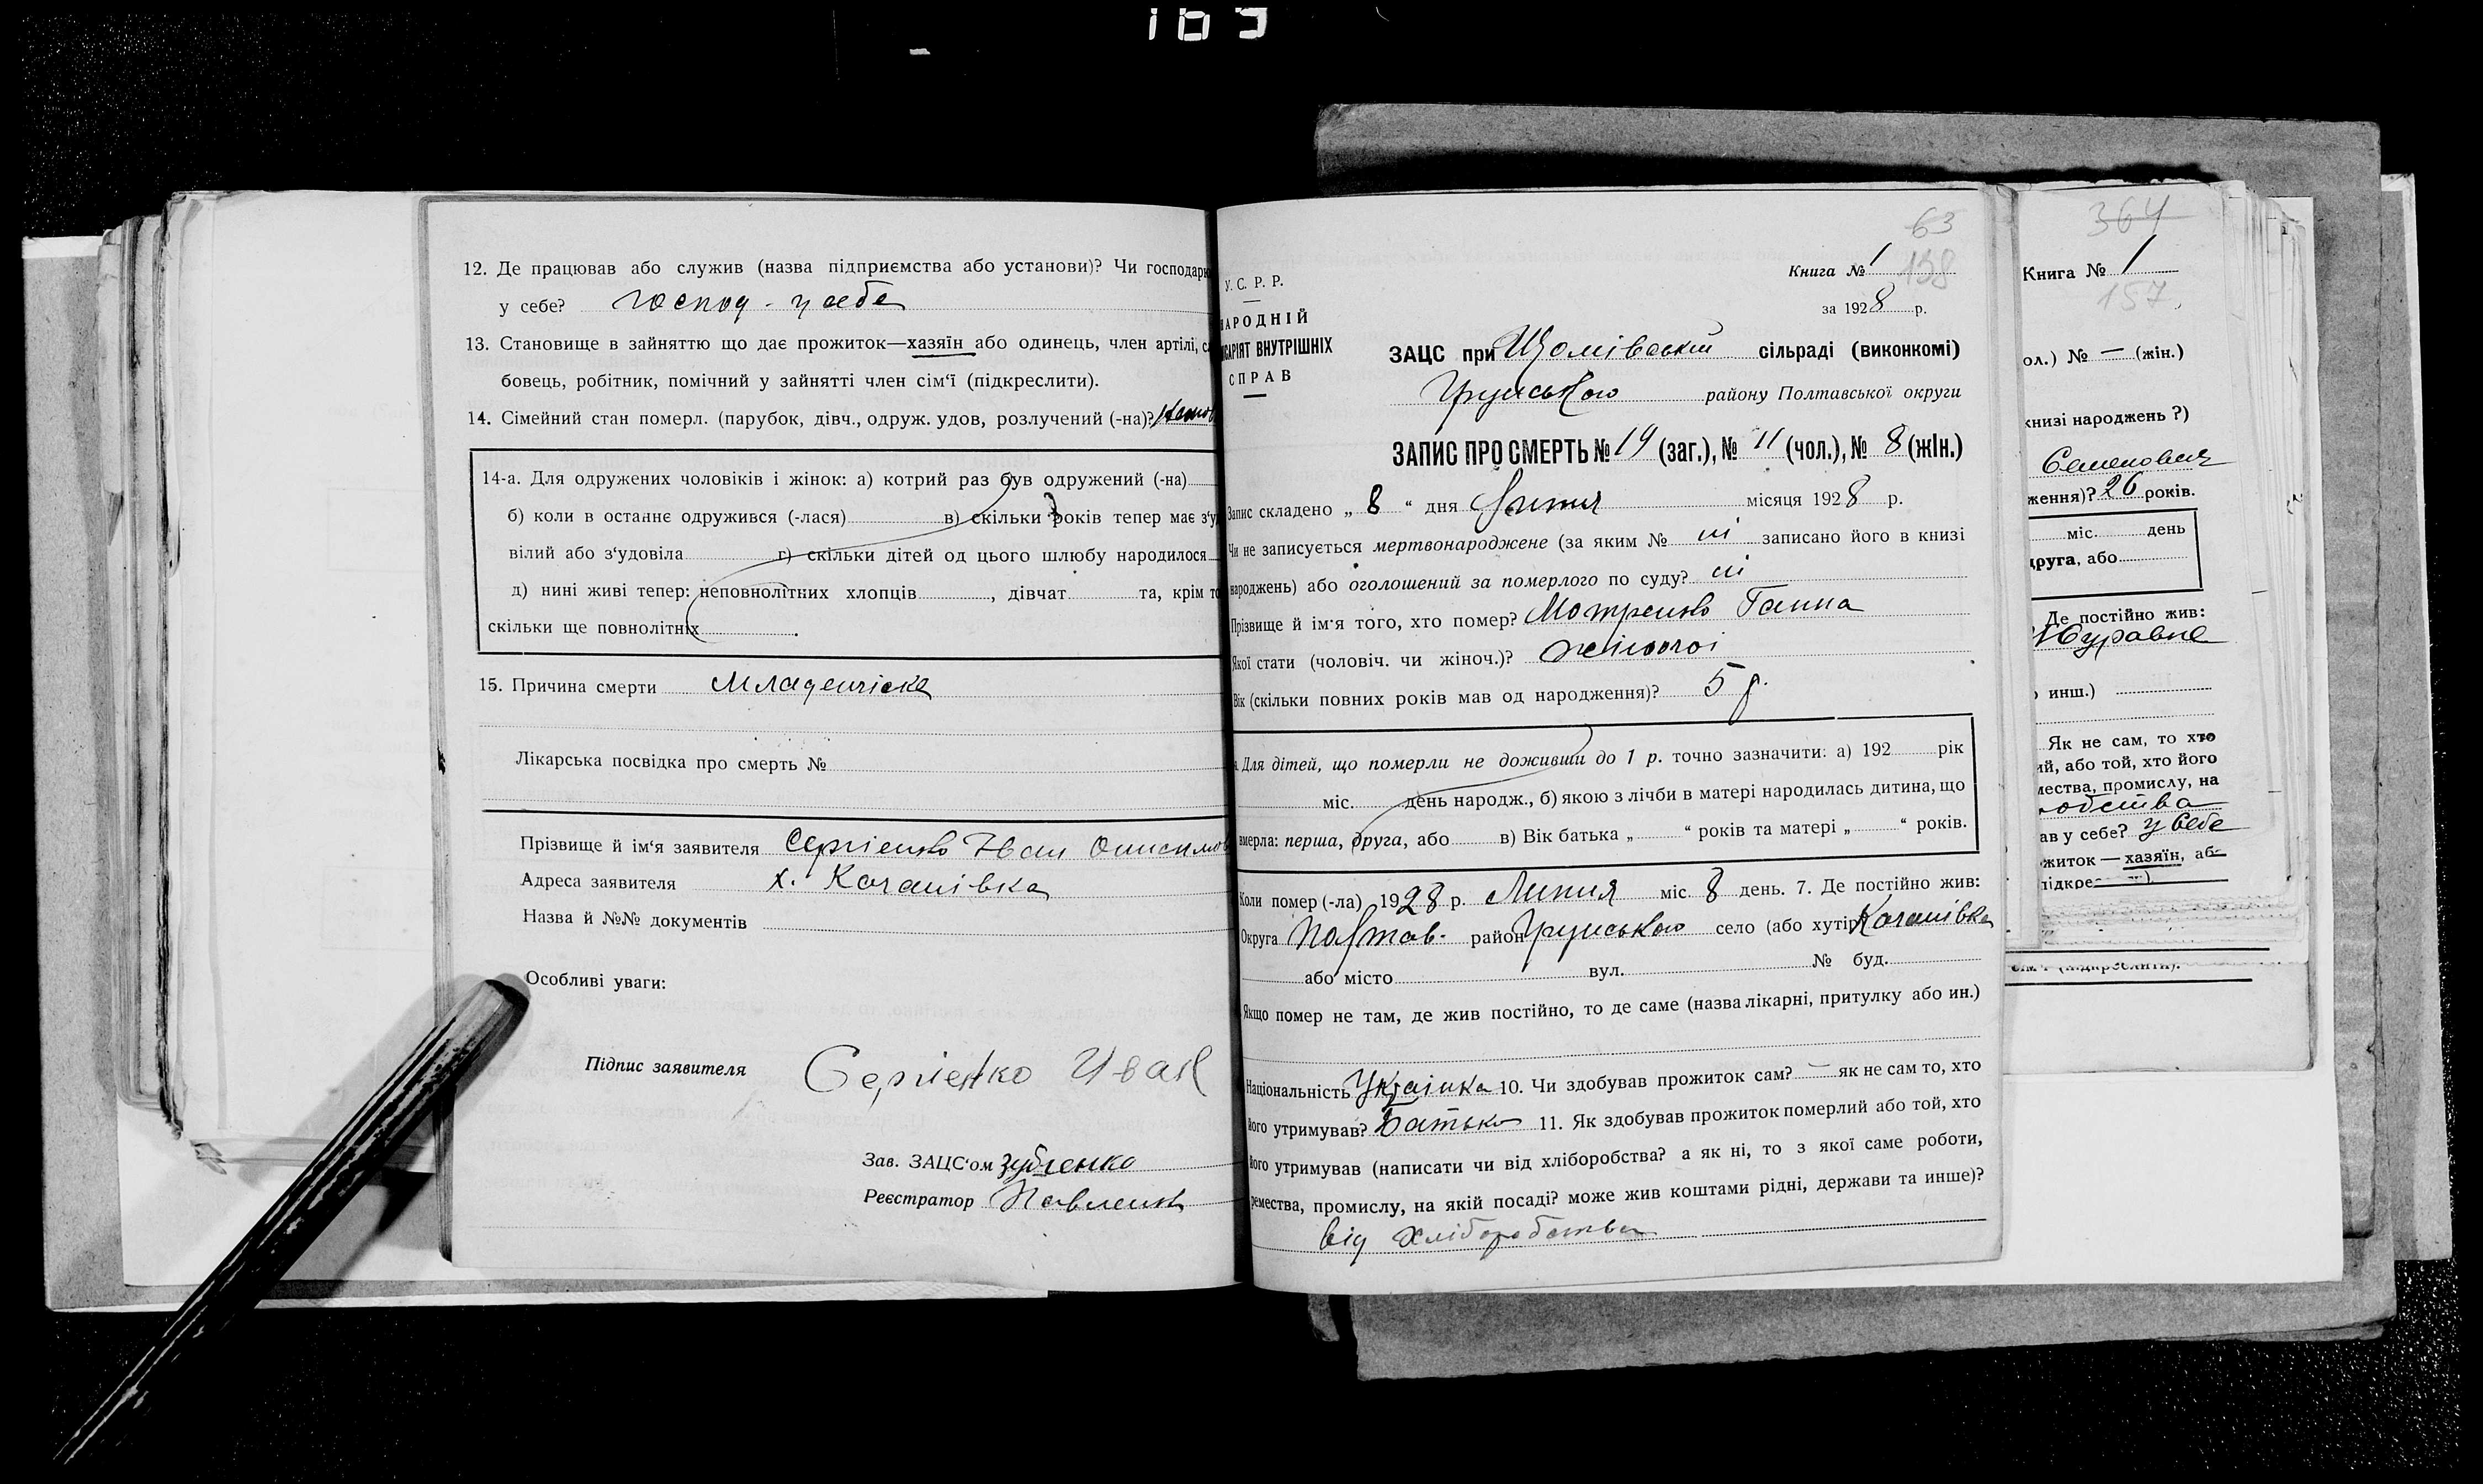 169
12. Де працював або служив (назва підприємства або установи)? Чи господарю
у себе? господ - у себе
13. Становище в зайняттю що дає прожиток—хазяїн або одинець, член артілі, с
бовець, робітник, помічний у зайнятті член сім‘ї (підкреслити).
14. Сімейний стан померл. (парубок, дівч., одруж. удов, розлучений (-на)?
14-а. Для одружених чоловіків і жінок: а) котрий раз був одружений (-на)
б) коли в останнє одружився (-лася) в) скільки років тепер має з‘у
вілий або з‘удовіла г) скільки дітей од цього шлюбу народилося
д) нині живі тепер: неповнолітних хлопців , дівчат та, крім то
скільки ще повнолітніх .
15. Причина смерти Младенчіска
Лікарська посвідка про смерть №
Прізвище й ім‘я заявителя Сергієнко Іван Онисимов
Адреса заявителя х. Качанівка
Назва й №№ документів
Особливі уваги:
Підпис заявителя Сергіенко Иван
Зав. ЗАЦС‘ом Зубченко
Реєстратор Павленко
63
Книга № 1 138
У. С. Р. Р.
за 1928 р.
АРОДНІЙ
ІСАРІЯТ ВНУТРІШНІХ
СПРАВ
ЗАЦС при сільраді (виконкомі)
Грунського району Полтавської округи
ЗАПИС ПРО СМЕРТЬ № 19 (заг.), № 11 (чол.), № 8 (жін.)
Запис складено „ 8 “ дня Липня місяця 1928 р.
Чи не записується мертвонароджене (за яким № ні записано його в книзі
народжень) або оголошений за померлого по суду? ні
Прізвище й ім‘я того, хто помер? Мотренко Ганна
Якої стати (чоловіч. чи жіноч.)? жіночоі
Вік (скільки повних років мав од народження)? 5 р.
Для дітей, що померли не доживши до 1 р. точно зазначити: а) 192 рік
міс. день народж., б) якою з лічби в матері народилась дитина, що
вмерла: перша, друга, або в) Вік батька „ “ років та матері „ “ років.
Коли помер (-ла) 1928 р. Липня міс. 8 день. 7. Де постійно жив:
Округа Полтав. район Грунського село (або хутір) Качанівка
або місто вул. № буд.
Якщо помер не там, де жив постійно, то де саме (назва лікарні, притулку або ин.)
Національність Українка 10. Чи здобував прожиток сам? — як не сам то, хто
його утримував? Батько 11. Як здобував прожиток померлий або той, хто
його утримував (написати чи від хліборобства? а як ні, то з якої саме роботи,
ремества, промислу, на якій посаді? може жив коштами рідні, держави та инше)?
від хліборобства
364
Книга № 1
157
ол.) № — (жін.)
книзі народжень ?)
Семенович
ження)? 26 років.
міс. день
друга, або
Де постійно жив:
Журавне
о инш.)
Як не сам, то хто
ий, або той, хто його
мества, промислу, на
ав у себе? у себе
житок — хазяїн, аб
підкре